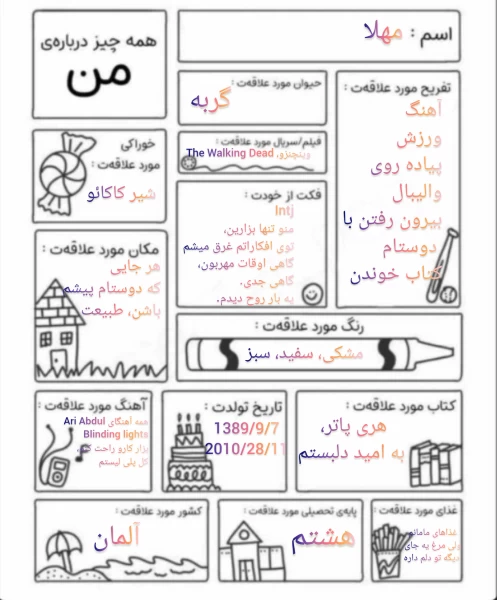 همه چیز درباره‌ی
من
اسم : مهلا
تفریح مورد علاقه‌ت :
آهنگ
ورزش
پیاده روی
والیبال
بیرون رفتن با
دوستام
کتاب خوندن
حیوان مورد علاقه‌ت :
گربه
فیلم/سریال مورد علاقه‌ت :
وینچنزو، The Walking Dead
خوراکی
مورد علاقه‌ت :
شیر کاکائو
فکت از خودت :
Intj
منو تنها بزارین،
توی افکاراتم غرق میشم
گاهی اوقات مهربون،
گاهی جدی،
یه بار روح دیدم.
مکان مورد علاقه‌ت :
هر جایی
که دوستام پیشم
باشن، طبیعت
رنگ مورد علاقه‌ت :
مشکی، سفید، سبز
آهنگ مورد علاقه‌ت :
همه آهنگای Ari Abdul
Blinding lights
بزار کارو راحت کنم،
کل پلی لیستم
تاریخ تولدت :
1389/9/7
2010/28/11
کتاب مورد علاقه‌ت :
هری پاتر،
به امید دل بستم
کشور مورد علاقه‌ت :
آلمان
پایه‌ی تحصیلی مورد علاقه‌ت :
هشتم
غذای مورد علاقه‌ت :
غذاهای مامانم
ولی مرغ یه جای
دیگه تو دلم داره